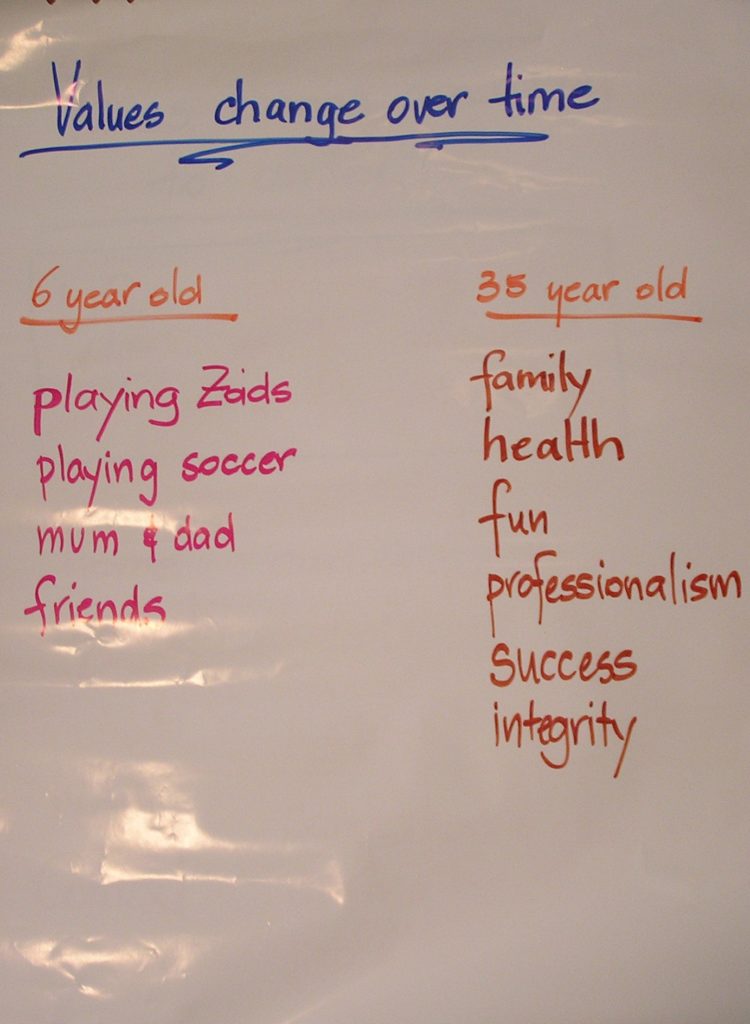 Values change over time
6 year old
playing Zoids
playing soccer
mum & dad
friends
35 year old
family
health
fun
professionalism
success
integrity